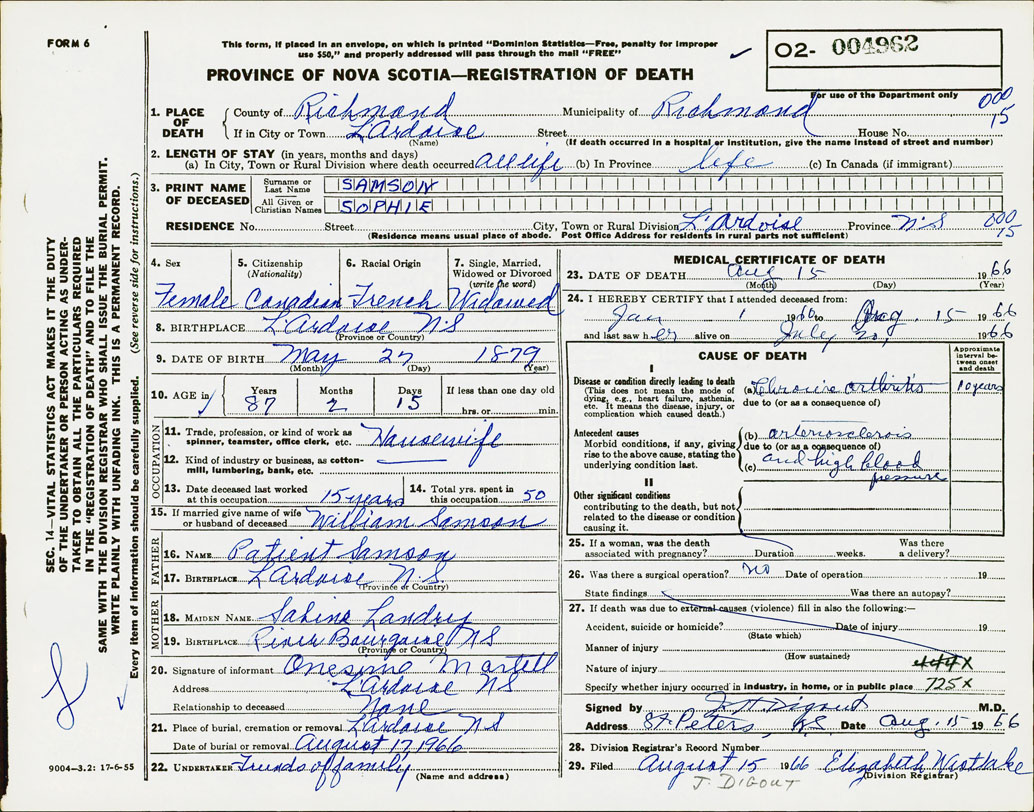 FORM 6
This form, if placed in an envelope, on which is printed "Dominion Statistics—Free, penalty for improper
use $50," and properly addressed will pass through the mail "FREE"
02- 004962
PROVINCE OF NOVA SCOTIA—REGISTRATION OF DEATH
For use of the Department only
000
15
1. PLACE OF DEATH
County of Richmond Municipality of Richmond
If in City or Town L'Ardoise Street House No.
(Name) (If death occurred in a hospital or institution, give the name instead of street and number)
2. LENGTH OF STAY (in years, months and days)
(a) In City, Town or Rural Division where death occurred all life (b) In Province life (c) In Canada (if immigrant)
3. PRINT NAME OF DECEASED
Surname or Last Name SAMSON
All Given or Christian Names SOPHIE
RESIDENCE No. Street City, Town or Rural Division L'Ardoise Province N.S 000
15
(Residence means usual place of abode. Post Office Address for residents in rural parts not sufficient)
4. Sex
Female
5. Citizenship
(Nationality)
Canadian
6. Racial Origin
French
7. Single, Married,
Widowed or Divorced
(write the word)
Widowed
8. BIRTHPLACE L'Ardoise N.S
(Province or Country)
9. DATE OF BIRTH May 27 1879
(Month) (Day) (Year)
10. AGE in
Years Months Days If less than one day old
87 2 15 hrs. or min.
OCCUPATION
11. Trade, profession, or kind of work as
spinner, teamster, office clerk, etc. Housewife
12. Kind of industry or business, as cotton-
mill, lumbering, bank, etc.
13. Date deceased last worked
at this occupation 15 years
14. Total yrs. spent in
this occupation 50
15. If married give name of wife
or husband of deceased William Samson
FATHER
16. NAME Patient Samson
17. BIRTHPLACE L'Ardoise N.S.
(Province or Country)
MOTHER
18. MAIDEN NAME Sabine Landry
19. BIRTHPLACE River Bourgeoise NS
(Province or Country)
20. Signature of informant Onesime Martell
Address L'Ardoise NS
Relationship to deceased None
21. Place of burial, cremation or removal L'Ardoise NS
Date of burial or removal August 17 1966
22. UNDERTAKER Friends of family
(Name and address)
MEDICAL CERTIFICATE OF DEATH
23. DATE OF DEATH Aug 15 1966
(Month) (Day) (Year)
24. I HEREBY CERTIFY that I attended deceased from:
Jan 1 1960 to Aug. 15 1966
and last saw h er alive on July 20, 1966
CAUSE OF DEATH
Approximate
interval be-
tween onset
and death
I
Disease or condition directly leading to death
(This does not mean the mode of dying, e.g., heart failure, asthenia, etc. It means the disease, injury, or complication which caused death.)
(a) Chronic arthritis 10 years
due to (or as a consequence of)
Antecedent causes
Morbid conditions, if any, giving
rise to the above cause, stating the
underlying condition last.
(b) arteriosclerosis
due to (or as a consequence of)
(c) and high blood
pressure
II
Other significant conditions
contributing to the death, but not
related to the disease or condition
causing it.
25. If a woman, was the death Was there
associated with pregnancy? Duration weeks. a delivery?
26. Was there a surgical operation? no Date of operation 19
State findings Was there an autopsy?
27. If death was due to external causes (violence) fill in also the following:—
Accident, suicide or homicide? Date of injury 19
(State which)
Manner of injury
(How sustained)
Nature of injury 444X
Specify whether injury occurred in industry, in home, or in public place 725X
Signed by J H Digout M.D.
Address St. Peters, N.S. Date Aug. 15 1966
28. Division Registrar's Record Number
29. Filed August 15 1966 Elizabeth Westlake
(Division Registrar)
J. DIGOUT
SEC. 14—VITAL STATISTICS ACT MAKES IT THE DUTY
OF THE UNDERTAKER OR PERSON ACTING AS UNDER-
TAKER TO OBTAIN ALL THE PARTICULARS REQUIRED
IN THE "REGISTRATION OF DEATH" AND TO FILE THE
SAME WITH THE DIVISION REGISTRAR WHO SHALL ISSUE THE BURIAL PERMIT.
WRITE PLAINLY WITH UNFADING INK. THIS IS A PERMANENT RECORD.
Every item of information should be carefully supplied. (See reverse side for instructions.)
9004-3.2: 17-6-55